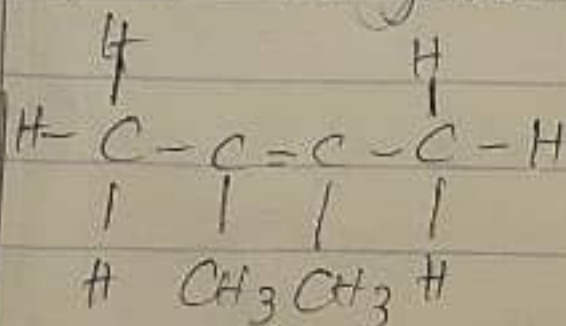 H H
H - C - C = C - C - H
H CH3 CH3 H